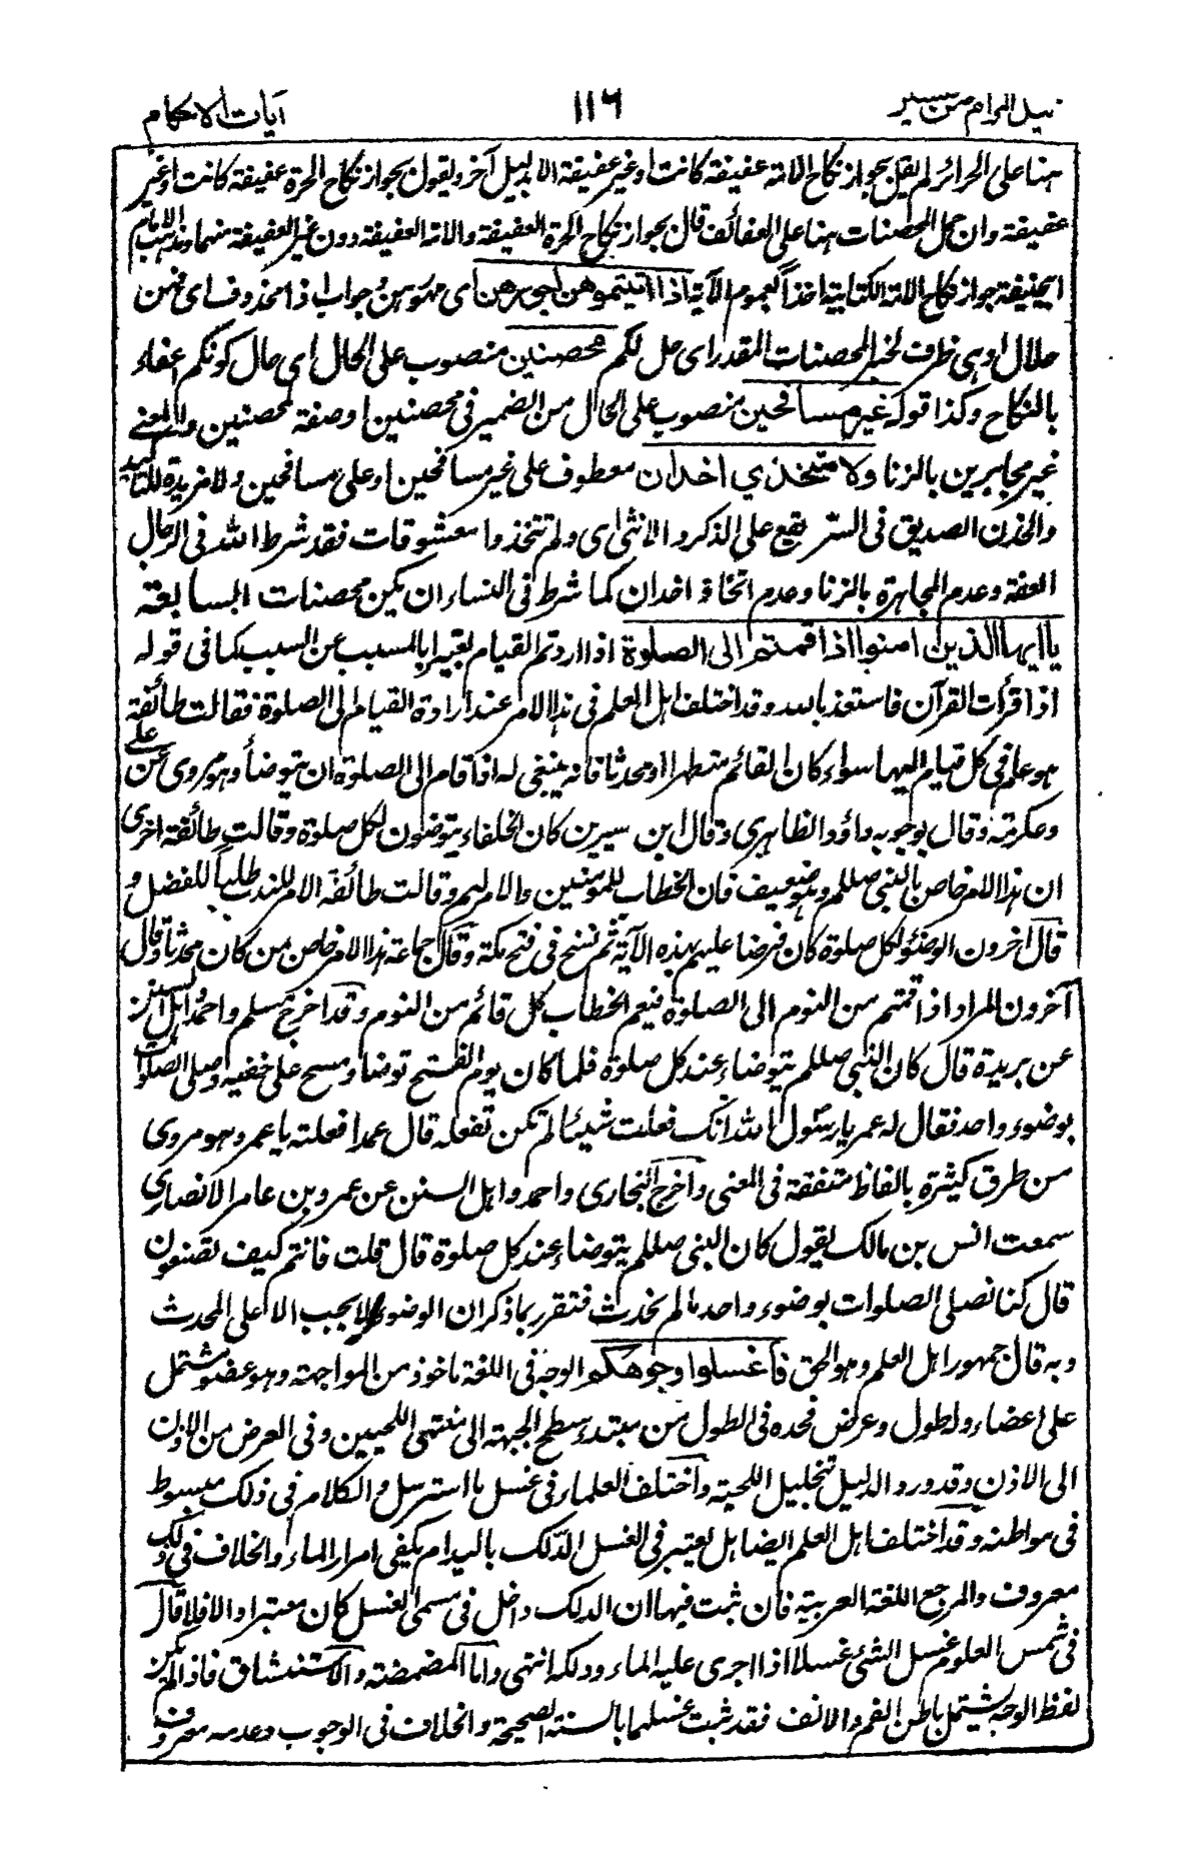 نيل المرام من تفسير ١١٦ آيات الاحكام
هنا على الحرائر لم يقل بجواز نكاح الامة عفيفة كانت او غير عفيفة الا بدليل آخر ويقول بجواز نكاح الحرة عفيفة كانت او غير
عفيفة وان حمل المحصنات هنا على العفائف قال بجواز نكاح الحرة العفيفة والامة العفيفة دون غير العفيفة منهما ومذهب الامام
ابيحنيفة جواز نكاح الامة الكتابية اخذاً بعموم الآية اذا آتيتموهن اجورهن اى مهورهن وجواب اذا محذوف اى فهن
حلال او هى ظرف لخبر المحصنات المقدر اى حل لكم محصنين منصوب على الحال اى حال كونكم اعفاء
بالنكاح وكذا قوله غير مسافحين منصوب على الحال من الضمير فى محصنين او صفة لمحصنين والمعنے
غير مجاهرين بالزنا ولا متخذي اخدان معطوف على غير مسافحين او على مسافحين ولا مزيدة للتاكيد
والخدن الصديق فى السر يقع على الذكر والانثى اى ولم تتخذوا معشوقات فقد شرط الله فى الرجال
العفة وعدم المجاهرة بالزنا وعدم اتخاذ اخدان كما شرط فى النساء ان يكن محصنات السابعة
يا ايها الذين امنوا اذا قمتم الى الصلوة اذا اردتم القيام تعبيرا بالمسبب عن السبب كما فى قوله
اذا قرأت القرآن فاستعذ بالله وقد اختلف اهل العلم فى هذا الامر عند ارادة القيام الى الصلوة فقالت طائفة
هو عام فى كل قيام اليها سواء كان القائم متطهرا او محدثا فانه ينبغى له اذا قام الى الصلوة ان يتوضأ وهو مروى عن على
وعكرمة وقال بوجوبه داؤد الظاهرى وقال ابن سيرين كان الخلفاء يتوضئون لكل صلوة وقالت طائفة اخرى
ان هذا الامر خاص بالنبى صللم وهو ضعيف فان الخطاب للمؤمنين والامر لهم وقالت طائفة الامر للندب طلباً للفضل و
قال آخرون الوضوء لكل صلوة كان فرضا عليهم بهذه الآية ثم نسخ فى فتح مكة وقال جماعة هذا الامر خاص بمن كان محدثا وقال
آخرون المراد اذا قمتم من النوم الى الصلوة فيعم الخطاب كل قائم من النوم وقد اخرج مسلم واحمد واهل السنن
عن بريدة قال كان النبى صللم يتوضاء عند كل صلوة فلما كان يوم الفتح توضا ومسح على خفيه وصلى الصلوات
بوضوء واحد فقال له عمر يا رسول الله انك فعلت شيئا لم تكن تفعله قال عمدا فعلته يا عمر وهو مروى
من طرق كثيرة بالفاظ متفقة فى المعنى واخرج البخارى واحمد واهل السنن عن عمرو بن عامر الانصارى
سمعت انس بن مالك يقول كان النبى صللم يتوضاء عند كل صلوة قال قلت فانتم كيف تصنعون
قال كنا نصلى الصلوات بوضوء واحد ما لم نحدث فتقرر بما ذكر ان الوضوء لا يجب الا على المحدث
وبه قال جمهور اهل العلم وهو الحق فاغسلوا وجوهكم الوجه فى اللغة ماخوذ من المواجهة وهو عضو مشتمل
على اعضاء وله طول وعرض فحده فى الطول من مبتدء سطح الجبهة الى منتهى اللحيين وفى العرض من الاذن
الى الاذن وقد ورد الدليل بتخليل اللحية واختلف العلماء فى غسل ما استرسل والكلام فى ذلك مبسوط
فى مواطنه وقد اختلف اهل العلم ايضا هل يعتبر فى الغسل الدلك باليد ام يكفى امرار الماء والخلاف فى ذلك
معروف والمرجع اللغة العربية فان ثبت فيها ان الدلك داخل فى مسمى الغسل كان معتبرا والا فلا قال
فى شمس العلوم غسل الشئ غسلا اذا اجرى عليه الماء ودلكه انتهى واما المضمضة والاستنشاق فاذا لم يكن
لفظ الوجه يشتمل باطن الفم والانف فقد ثبت غسلهما بالسنة الصحيحة والخلاف فى الوجوب وعدمه معروف